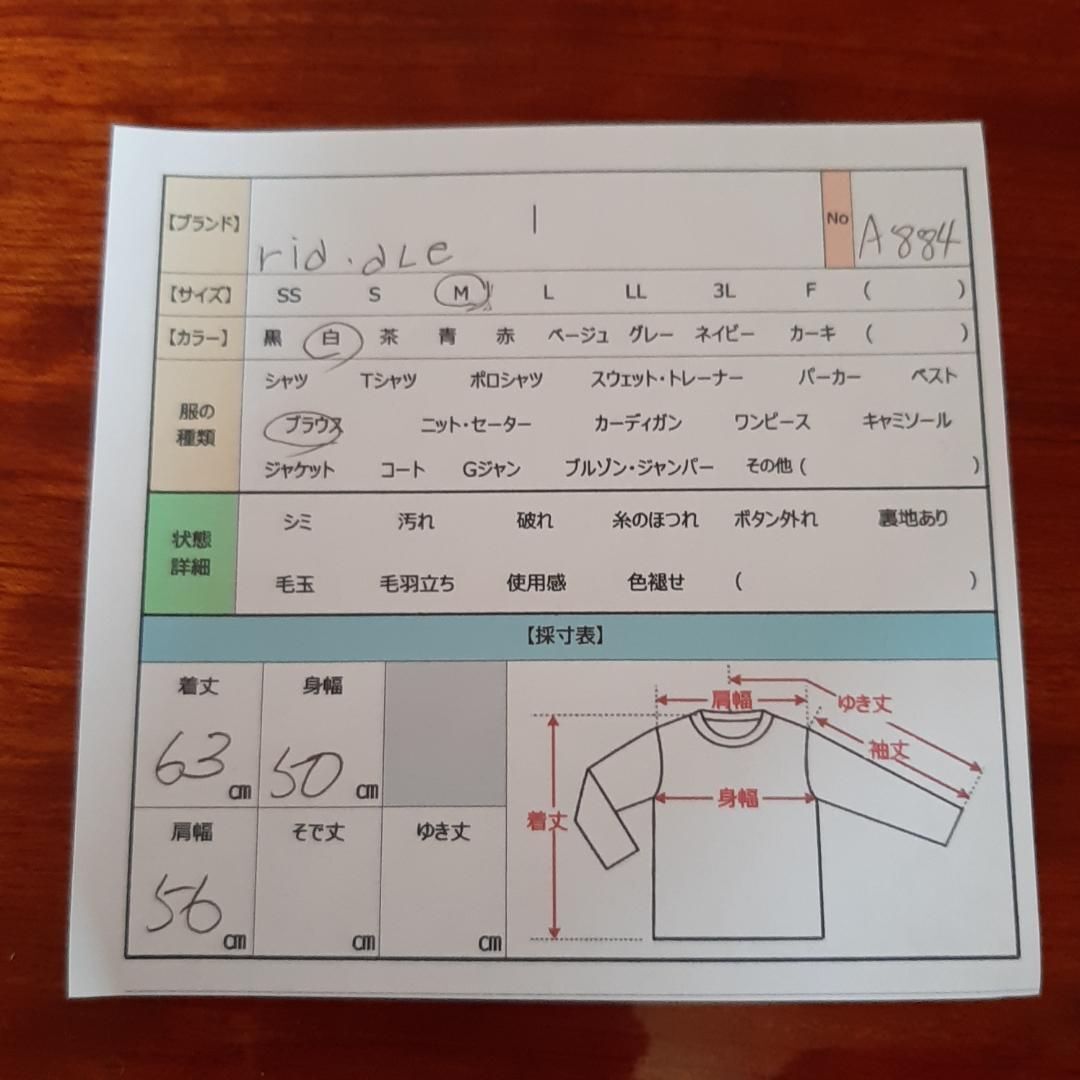 【ブランド】 rid.dLe No A884
【サイズ】 SS S M L LL 3L F ( )
【カラー】 黒 白 茶 青 赤 ベージュ グレー ネイビー カーキ ( )
服の種類
シャツ Tシャツ ポロシャツ スウェット・トレーナー パーカー ベスト
ブラウス ニット・セーター カーディガン ワンピース キャミソール
ジャケット コート Gジャン ブルゾン・ジャンパー その他 ( )
状態詳細
シミ 汚れ 破れ 糸のほつれ ボタン外れ 裏地あり
毛玉 毛羽立ち 使用感 色褪せ ( )
【採寸表】
着丈 身幅
63 cm 50 cm
肩幅 そで丈 ゆき丈
56 cm cm cm
肩幅 ゆき丈
袖丈
身幅
着丈